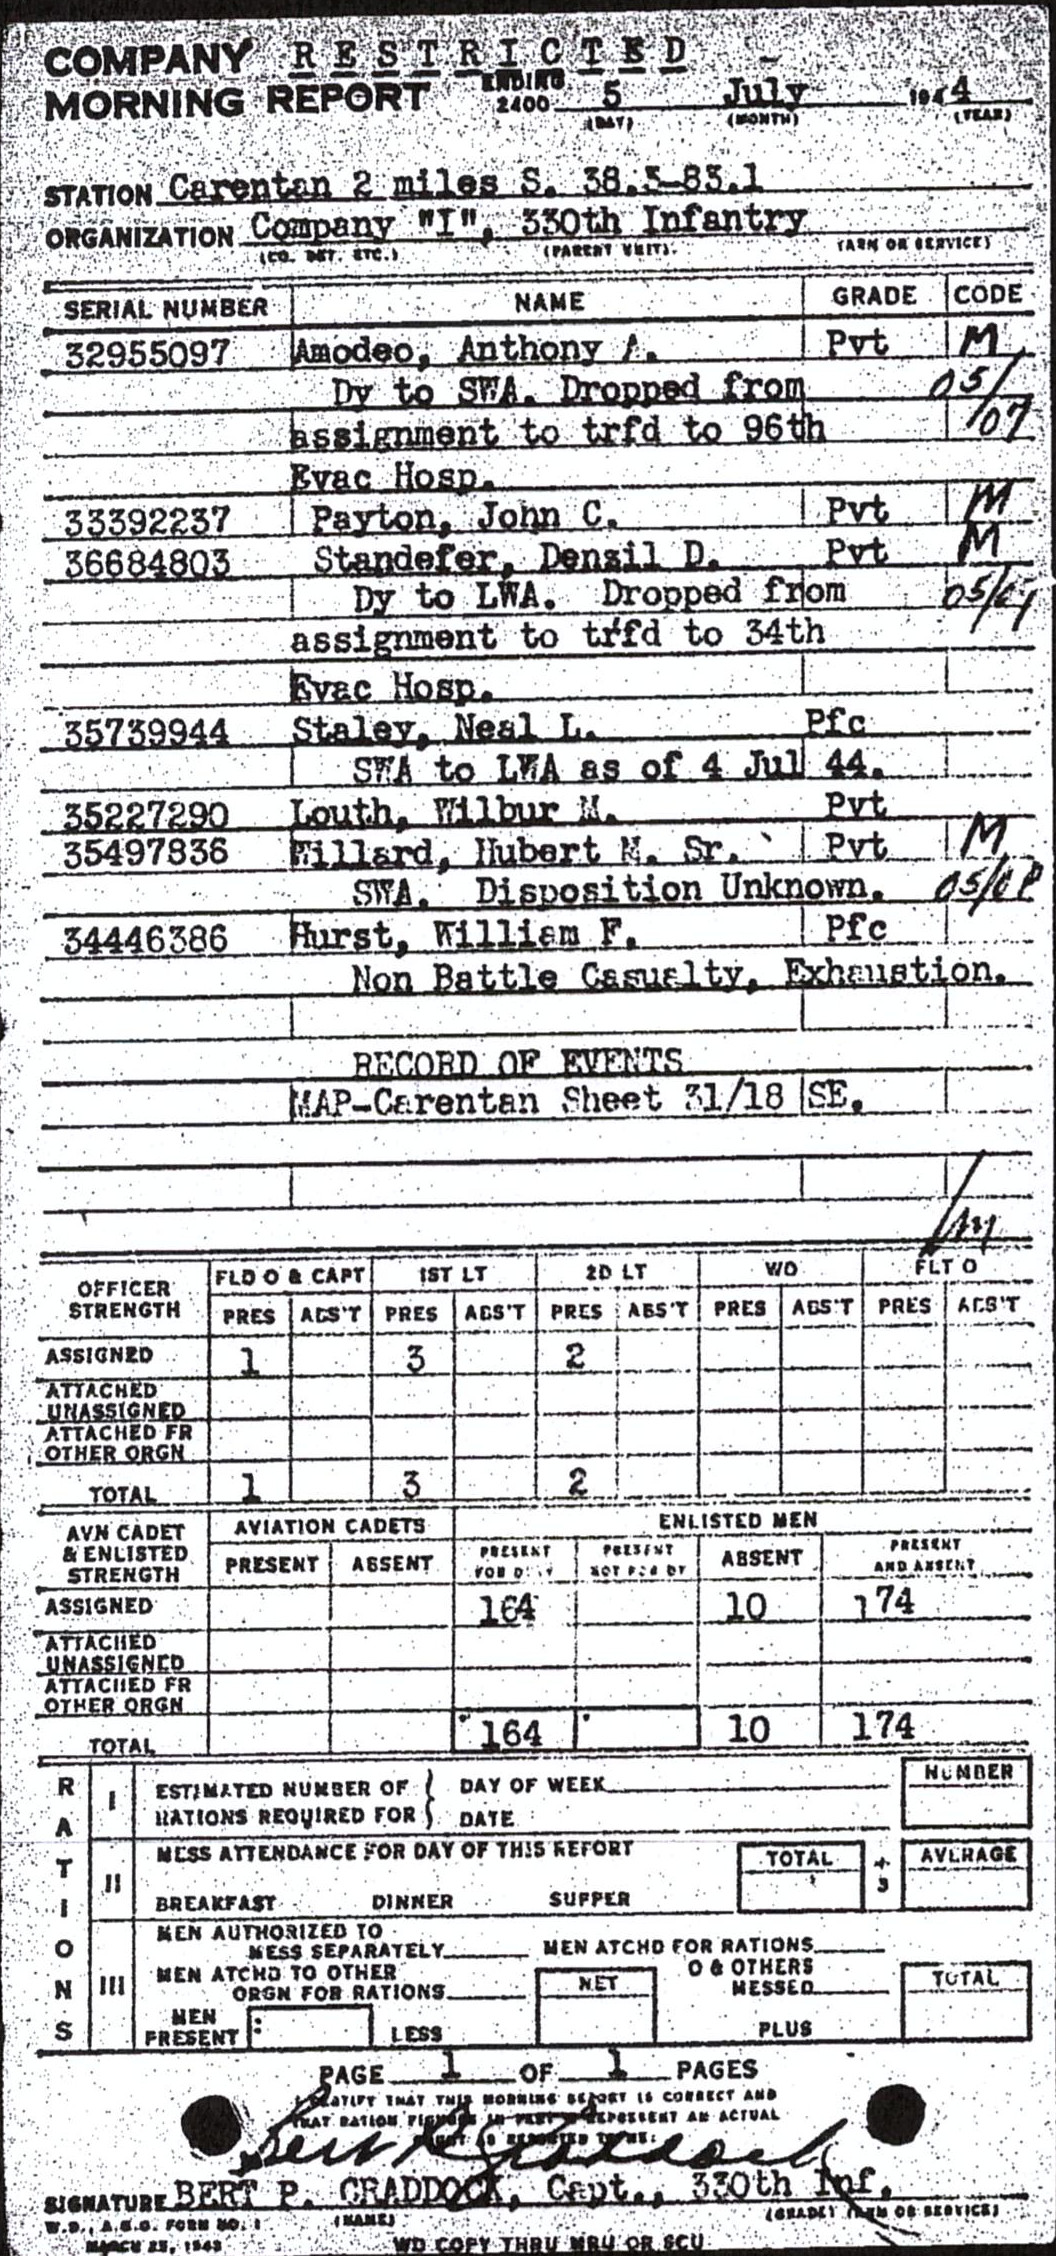 COMPANY RESTRICTED
MORNING REPORT ENDING 2400 5 July 1944
(DAY) (MONTH) (YEAR)
STATION Carentan 2 miles S. 38.3-83.1
ORGANIZATION Company "I", 330th Infantry
(CO. DET. ETC.) (PARENT UNIT). (ARM OR SERVICE)
SERIAL NUMBER NAME GRADE CODE
32955097 Amodeo, Anthony Pvt M
Dy to SWA. Dropped from 05/
assignment to trfd to 96th /07
Evac Hosp.
33392237 Payton, John C. Pvt M
36684803 Standefer, Denzil D. Pvt M
Dy to LWA. Dropped from 05/
assignment to trfd to 34th
Evac Hosp.
35739944 Staley, Neal L. Pfc
SWA to LWA as of 4 Jul 44.
35227290 Louth, Wilbur M. Pvt
35497836 Willard, Hubert M. Sr. Pvt M
SWA. Disposition Unknown. 05/
34446386 Hurst, William F. Pfc
Non Battle Casualty, Exhaustion.
RECORD OF EVENTS
MAP-Carentan Sheet 31/18 SE.
OFFICER STRENGTH FLD O & CAPT 1ST LT 2D LT WO FLT O
PRES ABS'T PRES ABS'T PRES ABS'T PRES ABS'T PRES ABS'T
ASSIGNED 1 3 2
ATTACHED UNASSIGNED
ATTACHED FR OTHER ORGN
TOTAL 1 3 2
AVN CADET & ENLISTED STRENGTH AVIATION CADETS ENLISTED MEN
PRESENT ABSENT PRESENT FOR DUTY PRESENT NOT FOR DY ABSENT PRESENT AND ABSENT
ASSIGNED 164 10 174
ATTACHED UNASSIGNED
ATTACHED FR OTHER ORGN
TOTAL 164 10 174
RATIONS
I ESTIMATED NUMBER OF RATIONS REQUIRED FOR { DAY OF WEEK NUMBER
DATE
II MESS ATTENDANCE FOR DAY OF THIS REPORT TOTAL ÷ 3 AVERAGE
BREAKFAST DINNER SUPPER
III MEN AUTHORIZED TO MESS SEPARATELY MEN ATCHD FOR RATIONS
MEN ATCHD TO OTHER ORGN FOR RATIONS NET O & OTHERS MESSED TOTAL
MEN PRESENT LESS PLUS
PAGE 1 OF 1 PAGES
I CERTIFY THAT THIS MORNING REPORT IS CORRECT AND
THAT RATION FIGURES IN PART REPRESENT AN ACTUAL
Bert P Craddock
SIGNATURE BERT P. CRADDOCK, Capt., 330th Inf.
(NAME) (GRADE) (ARM OR SERVICE)
W.D., A.G.O. FORM NO. 1
MARCH 25, 1943 WD COPY THRU MRU OR SCU